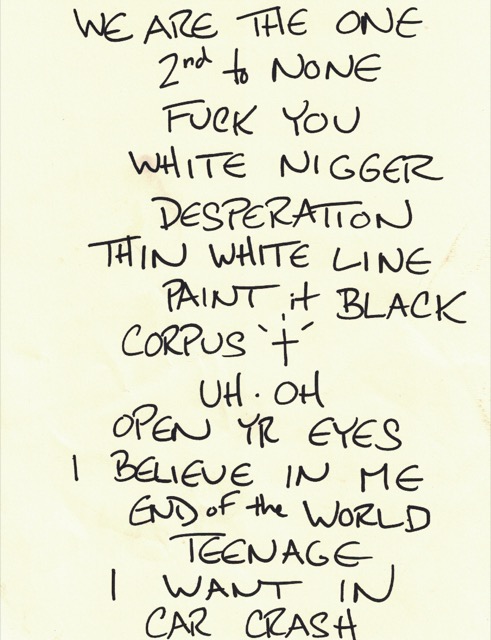 WE ARE THE ONE
2nd to NONE
FUCK YOU
WHITE NIGGER
DESPERATION
THIN WHITE LINE
PAINT it BLACK
CORPUS †
UH. OH
OPEN YR EYES
I BELIEVE IN ME
END of the WORLD
TEENAGE
I WANT IN
CAR CRASH